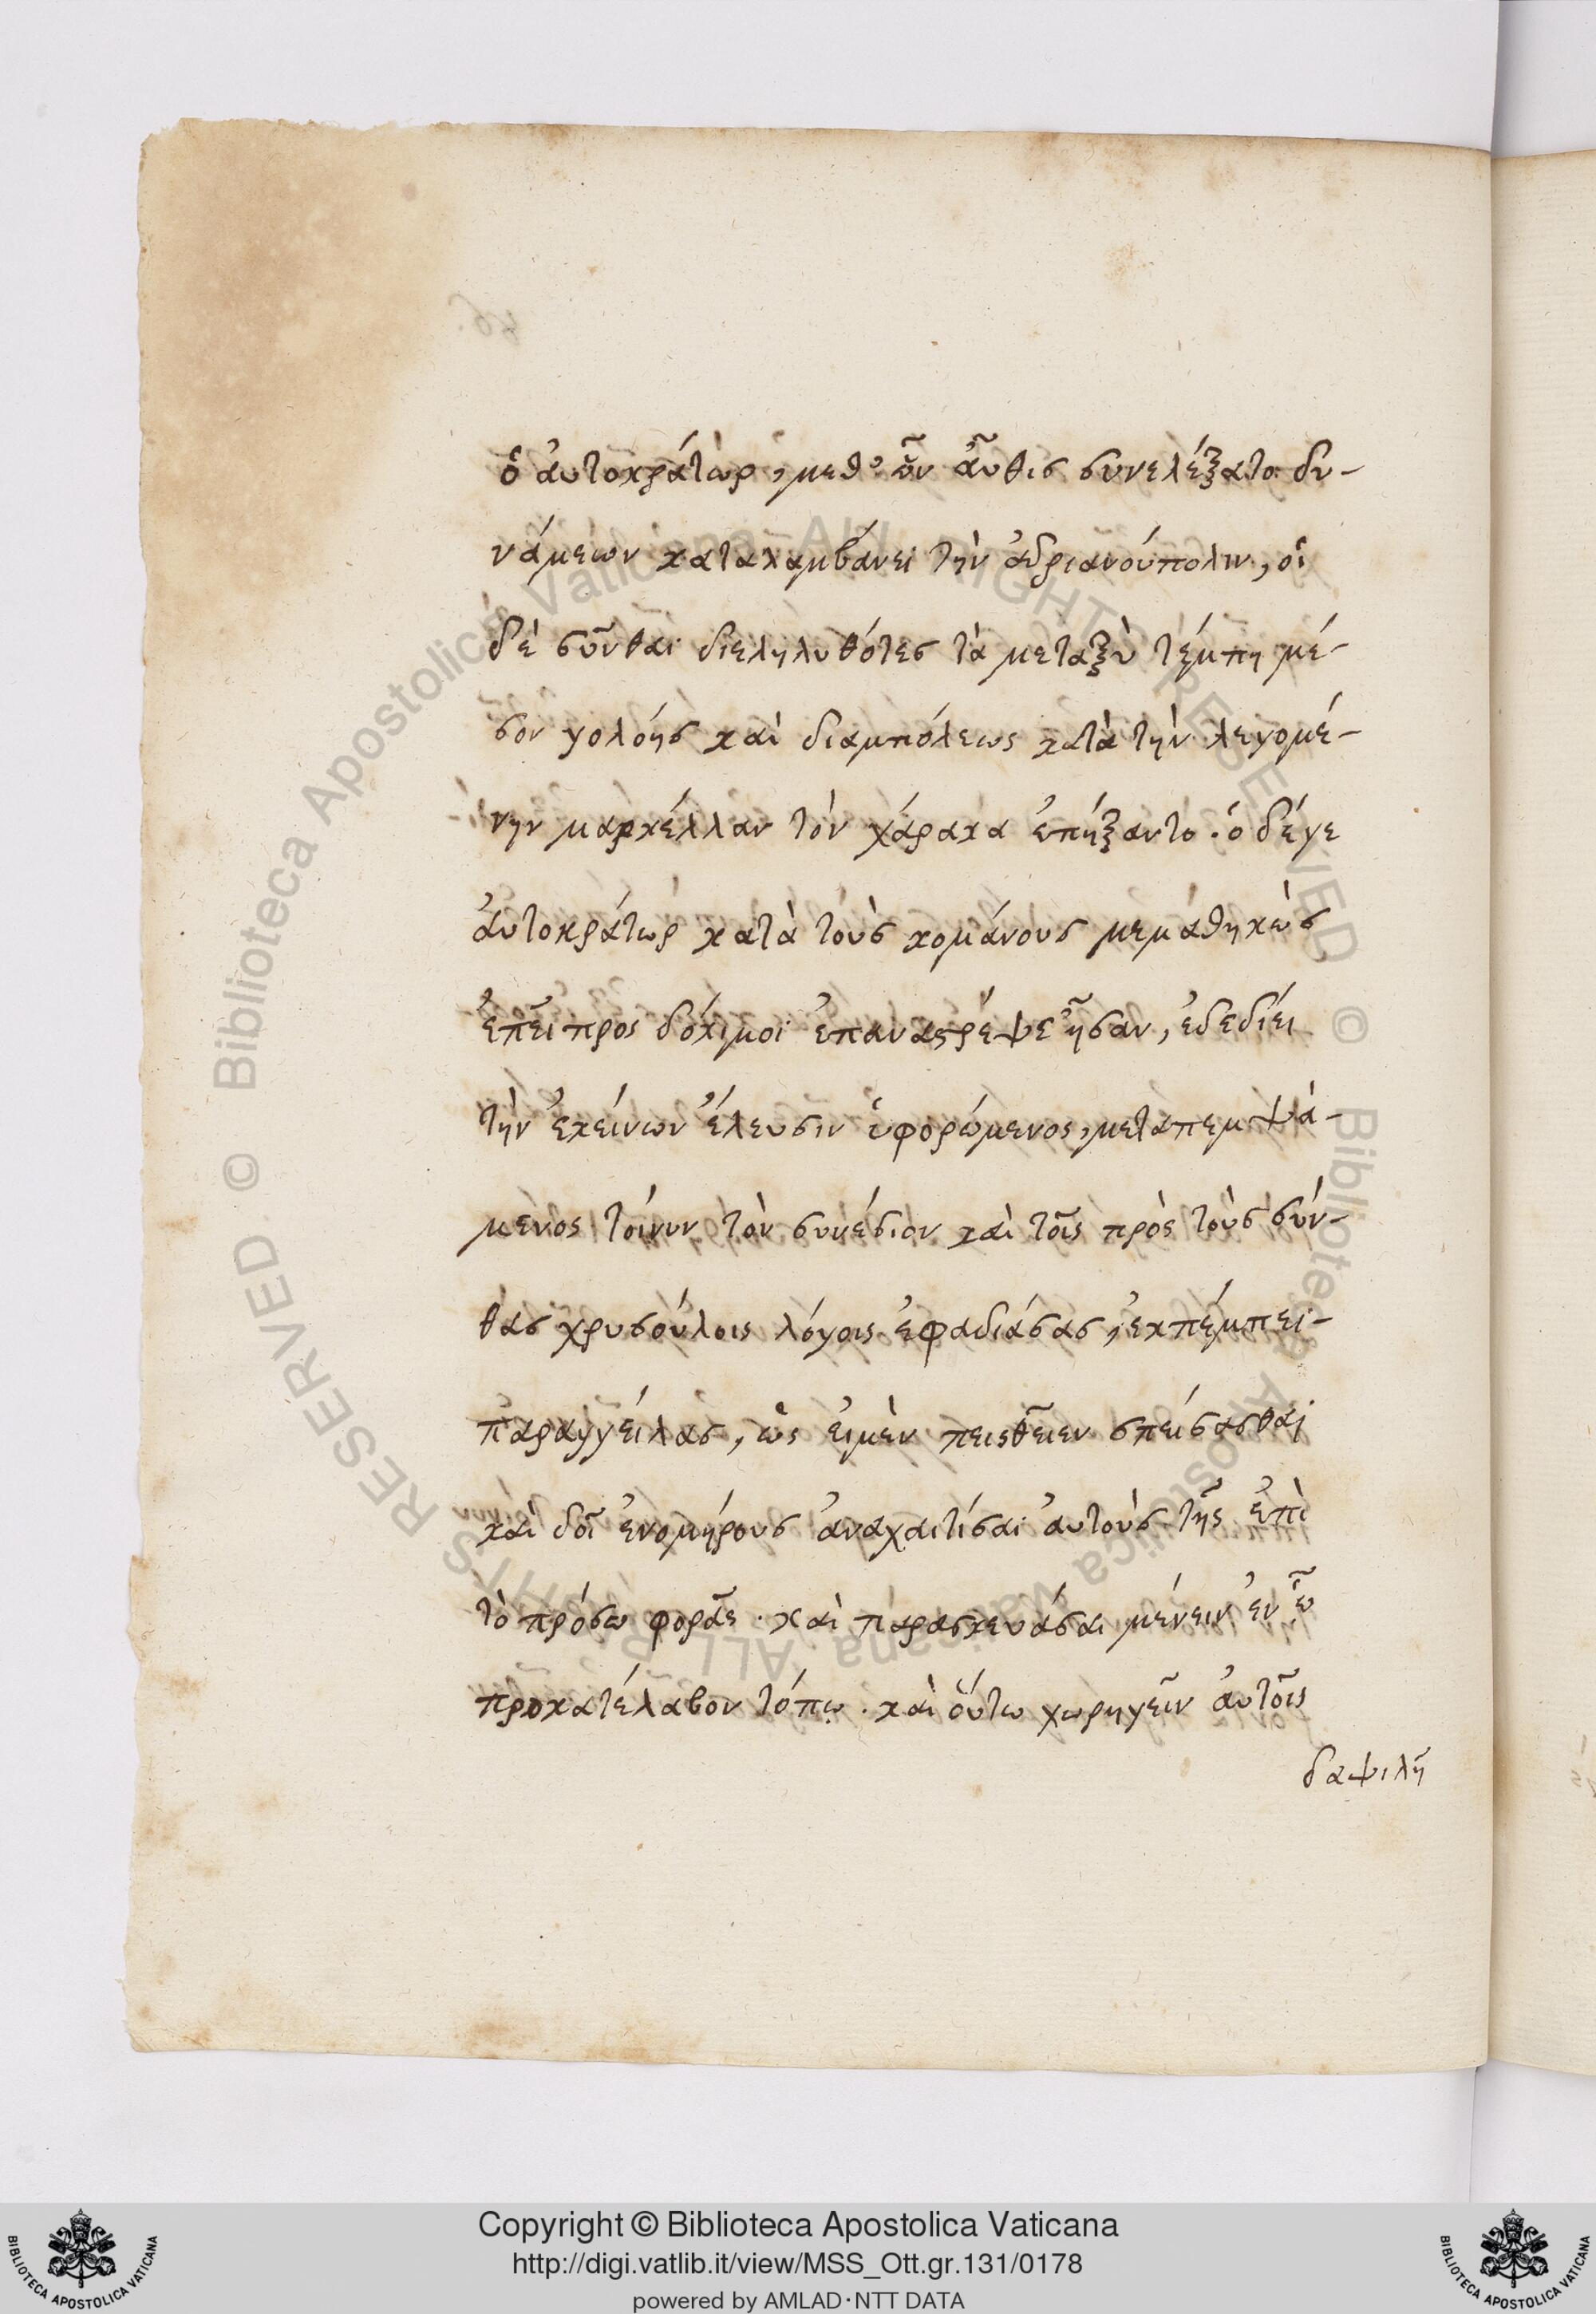 ὁ ἀυτοκράτωρ, μεθ' ὧν ἆυθισ συνελέξατο δυ-
νάμεων καταλαμβάνει τὴν ἀδριανούπολιν, οἱ
δὲ σῦνθαι διεληλυθότεσ τὰ μεταξὺ τέμπη μέ-
σον γολόησ καὶ διαμπόλεως κατὰ τὴν λεγομέ-
νην μαρκέλλαν τὸν χάρακα ἐπήξαντο. ὁ δέγε
ἀυτοκράτωρ κατὰ τοὺσ κομάνουσ μεμαθηκὼσ
ἐπεῖ προς δόκιμοι ἐπαναστρέψε ἦσαν, ἐδεδίει
τὴν ἐκείνων ἔλευσιν ὑφορώμενος, μεταπεμψά-
μενος τοίνυν τὸν συνέσιον καὶ τοῖς πρὸς τοὺσ σύν-
θασ χρυσούλοις λόγοις ἐφαδιάσας, ἐκπέμπει-
παραγγείλας, ὡς ἐιμὲν πεισθεῖεν σπείσασθαι
καὶ δοῖ ἐνομήρουσ ἀναχαιτίσαι ἀυτοὺσ τῆς ἐπὶ
τὸ πρόσω φορᾶς. καὶ παρασκευάσαι μένειν ἐν ᾧ
προκατέλαβον τόπῳ. καὶ ὅυτω χωρηγεῖν ἀυτοῖς
δαψιλῆ
Copyright © Biblioteca Apostolica Vaticana
http://digi.vatlib.it/view/MSS_Ott.gr.131/0178
powered by AMLAD·NTT DATA